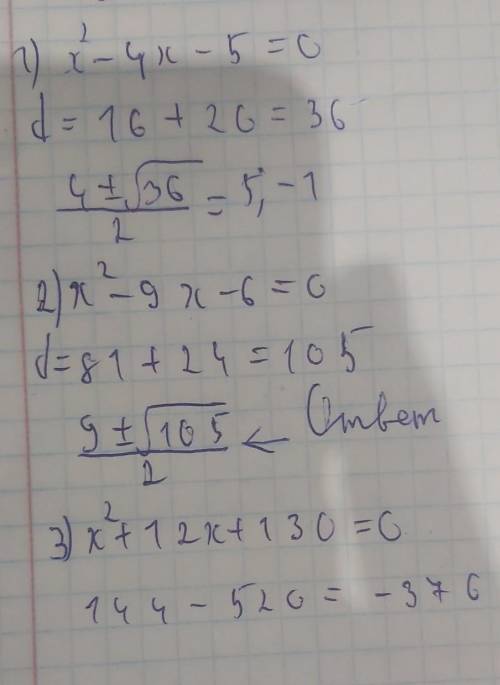 1) x² - 4x - 5 = 0
d = 16 + 20 = 36
(4 ± √36)/2 = 5; -1
2) x² - 9x - 6 = 0
d = 81 + 24 = 105
(9 ± √105)/2 ← Ответ
3) x² + 12x + 130 = 0
144 - 520 = -376